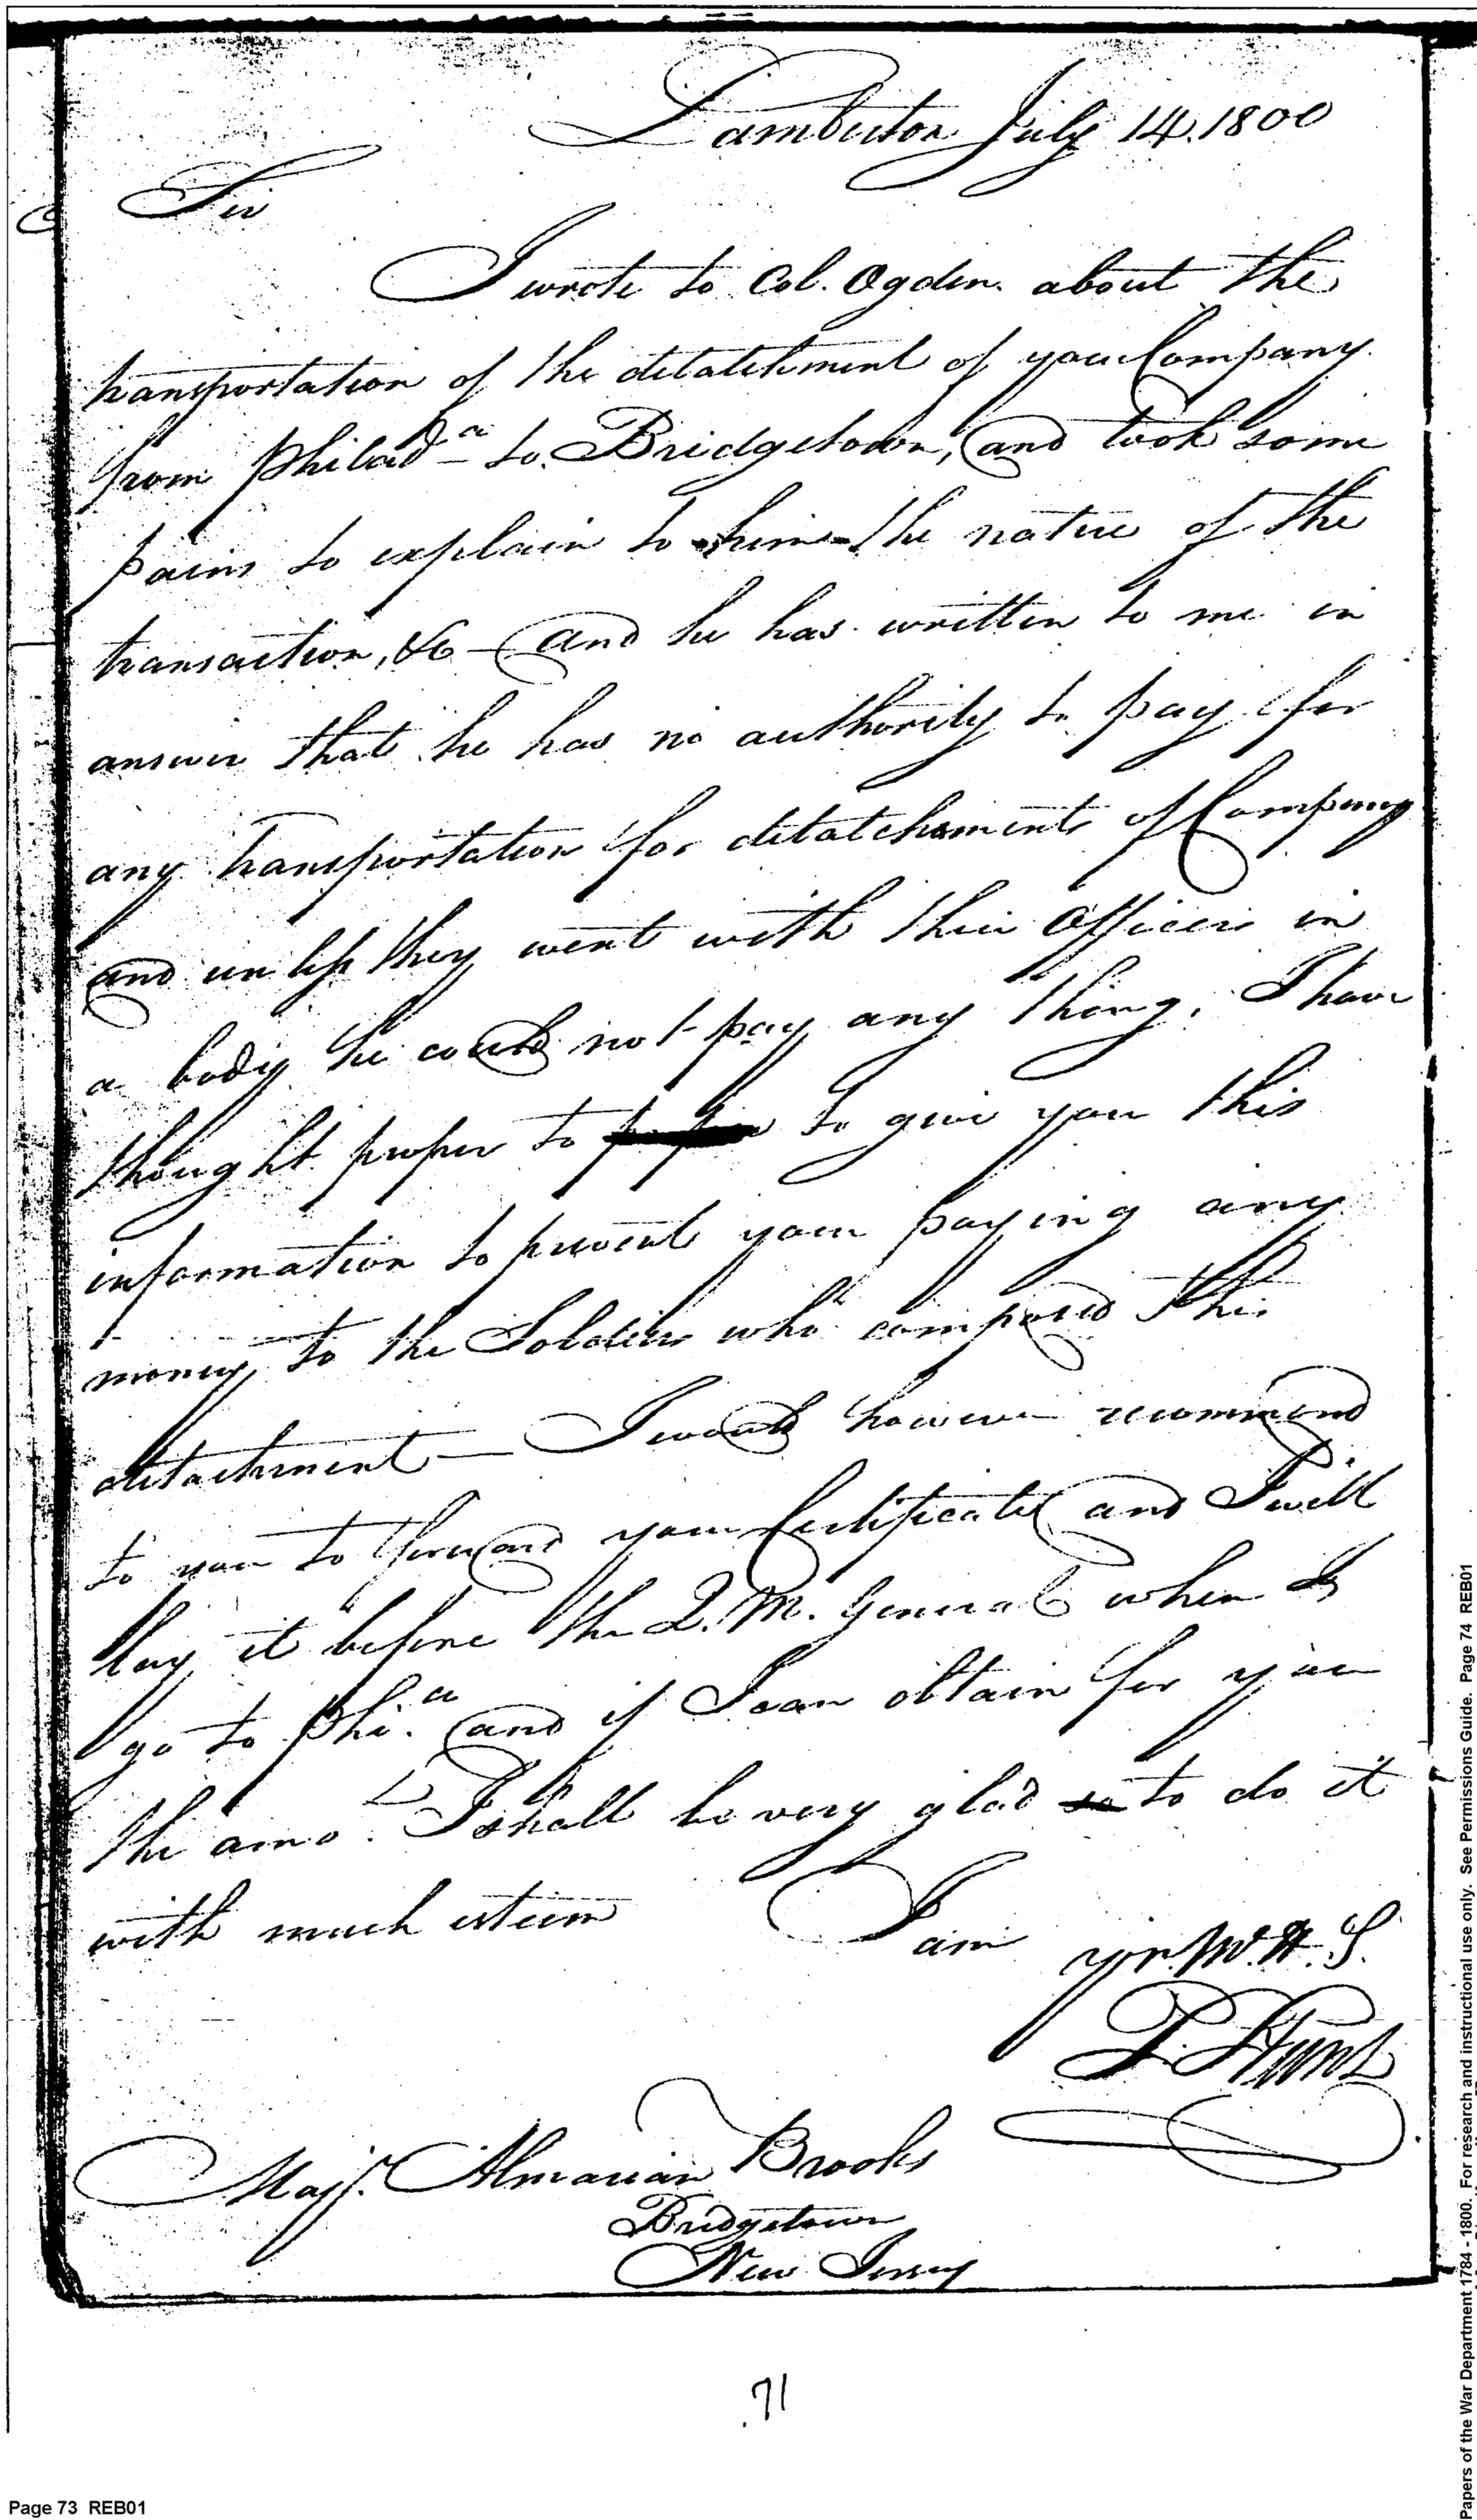 Lamberton July 14. 1800
Sir
I wrote to Col. Ogden about the
transportation of the detatchment of your Company
from Philad.a to Bridgetown, and took some
pains to explain to him the nature of the
transaction, &c — and he has written to me in
answer that he has no authority to pay for
any transportation for detatchments of Company
and unless they went with their Officers in
a body he could not pay any thing. I have
thought proper to to give you this
information to prevent your paying any
money to the Soldiers who composed this
detachment — I would however recommend
to you to forward your Certificate and I will
lay it before the Q. M. General when I
go to Phi.a and if I can obtain for you
the amo.t I shall be very glad to do it
with much esteem I am yr. M. H. S.
P. Hunt
Majr. Almarian Brooks
Bridgetown
New Jersey
71
Page 73 REB01
Papers of the War Department 1784 - 1800. For research and instructional use only. See Permissions Guide. Page 74 REB01